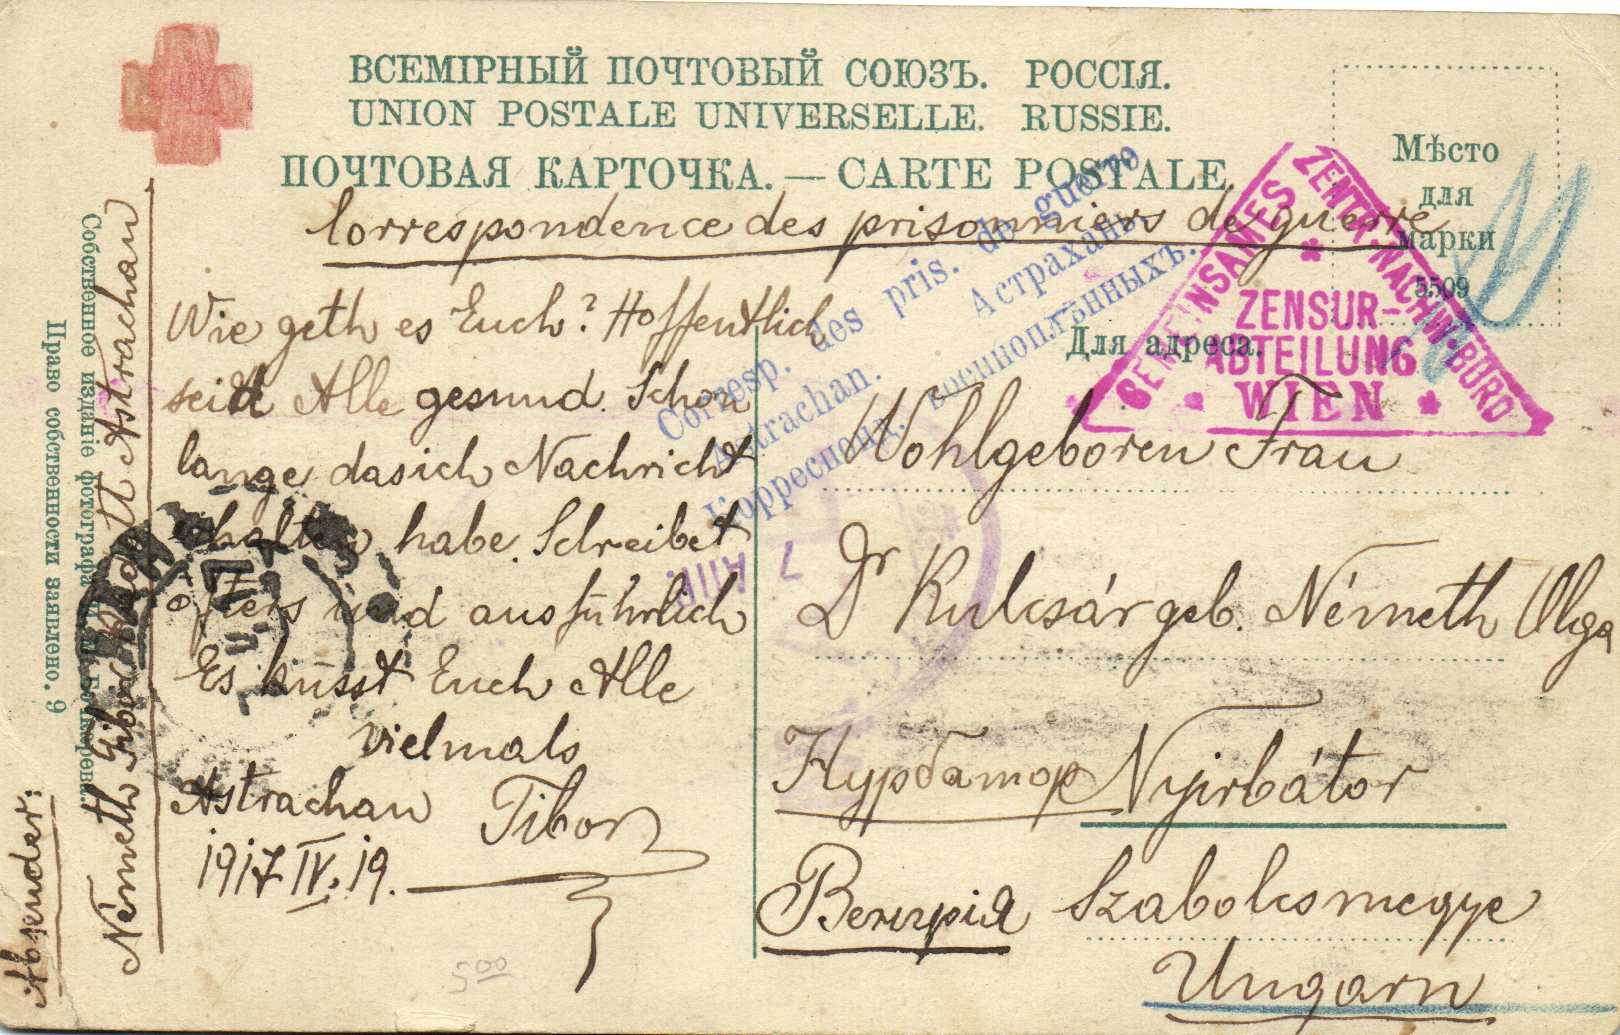 ВСЕМІРНЫЙ ПОЧТОВЫЙ СОЮЗЪ. РОССІЯ.
UNION POSTALE UNIVERSELLE. RUSSIE.
ПОЧТОВАЯ КАРТОЧКА. — CARTE POSTALE.
Correspondence des prisonniers de guerre
Мѣсто
для
марки
5509
Corresp. des pris. de guerre
Astrachan. Астрахань.
Корреспонд. военноплѣнныхъ.
GEMEINSAMES ZENTR.-NACHW.-BÜRO
ZENSUR-
ABTEILUNG
WIEN
Для адреса.
Wie geth es Euch? Hoffentlich
seid Alle gesund. Schon
lange dasich Nachricht
erhalten habe. Schreibet
öfters und ausführlich
Es küsst Euch Alle
vielmals
Tibor
Astrachan
1917 IV. 19.
Wohlgeboren Frau
Dr Kulcsár geb. Németh Olga
Нурбатор Nyirbátor
Венгрія Szabolcsmegye
Ungarn
500
Absender:
Németh Tibor Astrachan
Собственное изданіе
Право собственности заявлено. 9
7